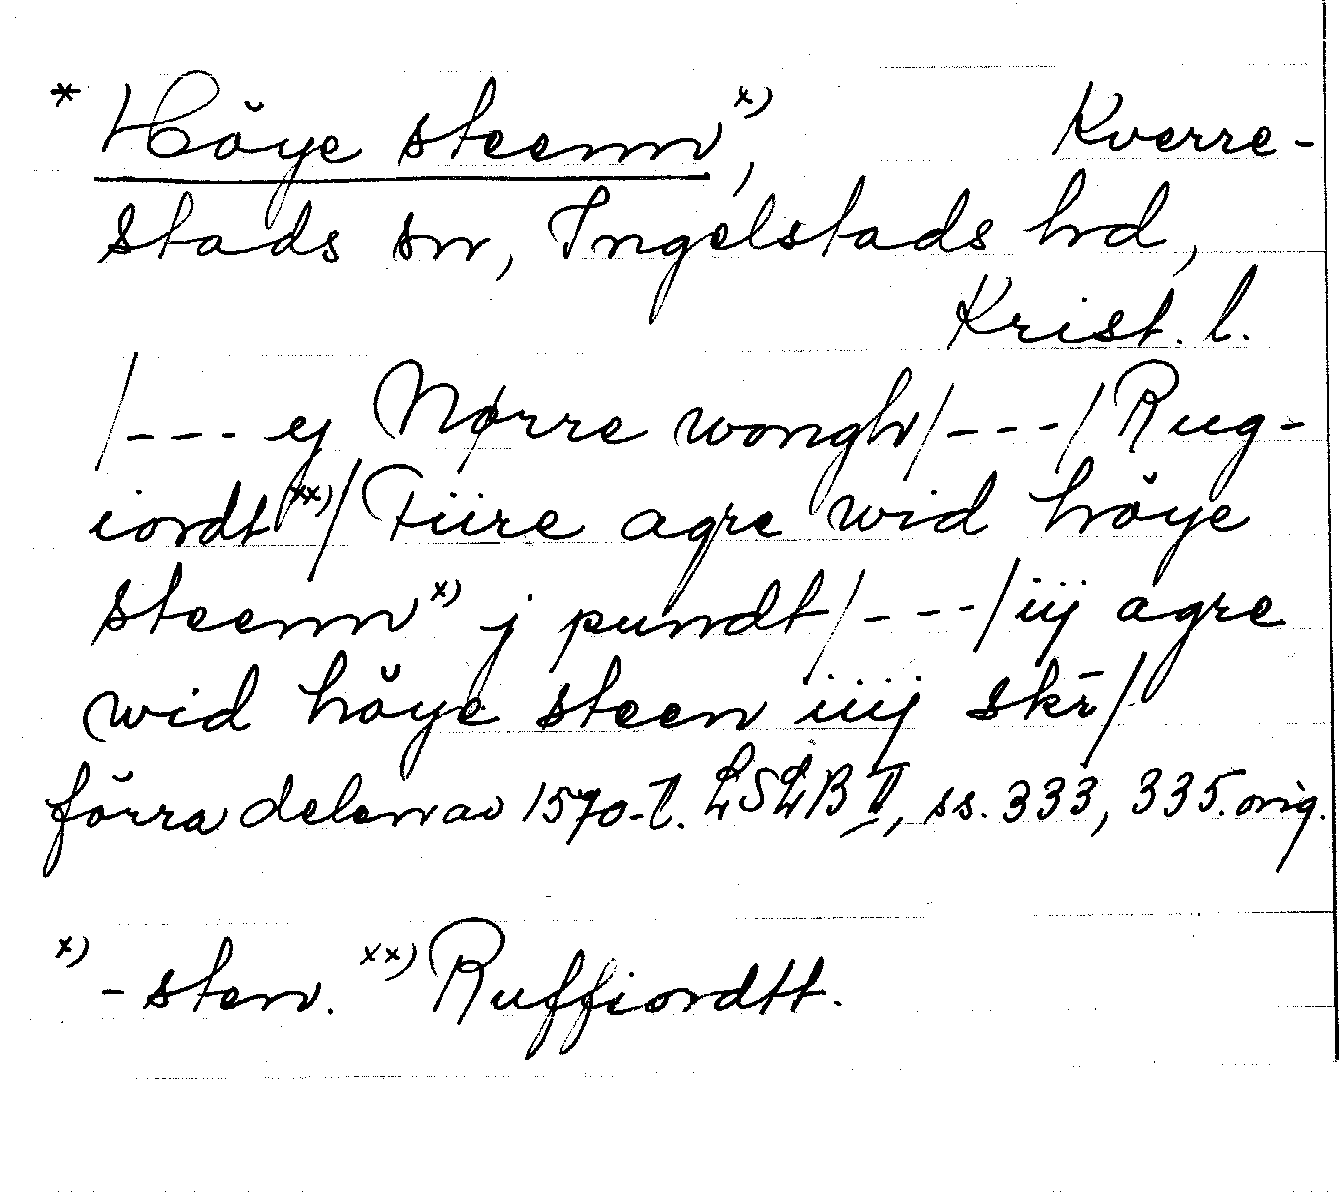 * Hŏye steenn x), Kverre-
stads sn, Ingelstads hd,
Krist. l.
/--- ej Nørre wongh/---/Rug-
iordt xx)/ Fiire agre wid hŏye
steenn x) j pundt/---/iij agre
wid hŏye steen iiij skr̄/
förra delen av 1570-t. LSLB II, ss. 333, 335. orig.
x) -sten. xx) Ruffiordtt.